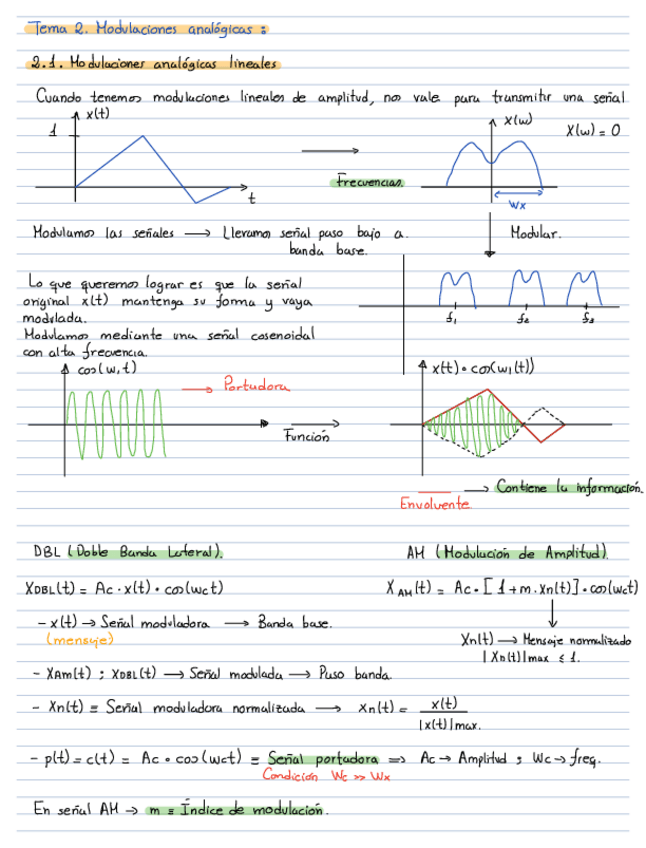 Tema 2. Modulaciones analógicas:
2.1. Modulaciones analógicas lineales
Cuando tenemos modulaciones lineales de amplitud, nos vale para transmitir una señal
x(t)
1
t
Frecuencias.
X(w)
X(w) = 0
Wx
Modulamos las señales → Llevamos señal paso bajo a
banda base.
Modular.
Lo que queremos lograr es que la señal
original x(t) mantenga su forma y vaya
modulada.
Modulamos mediante una señal cosenoidal
con alta frecuencia.
f₁ f₂ f₃
cos(w,t)
→ Portadora
Función
x(t)·cos(w₁(t))
Envolvente → Contiene la información.
DBL (Doble Banda Lateral).
XDBL(t) = Ac·x(t)·cos(wct)
- x(t) → Señal moduladora → Banda base.
(mensaje)
AM (Modulación de Amplitud).
XAM(t) = Ac·[1+m.Xn(t)]·cos(wct)
Xn(t) → Mensaje normalizado
|Xn(t)|max ≤ 1.
- XAm(t) ; XDBL(t) → Señal modulada → Paso banda.
- Xn(t) ≡ Señal moduladora normalizada → xn(t) = x(t) / |x(t)|max.
- p(t) = c(t) = Ac·cos(wct) ≡ Señal portadora ⇒ Ac → Amplitud ; Wc → freq.
Condición Wc >> Wx
En señal AM → m ≡ Índice de modulación.